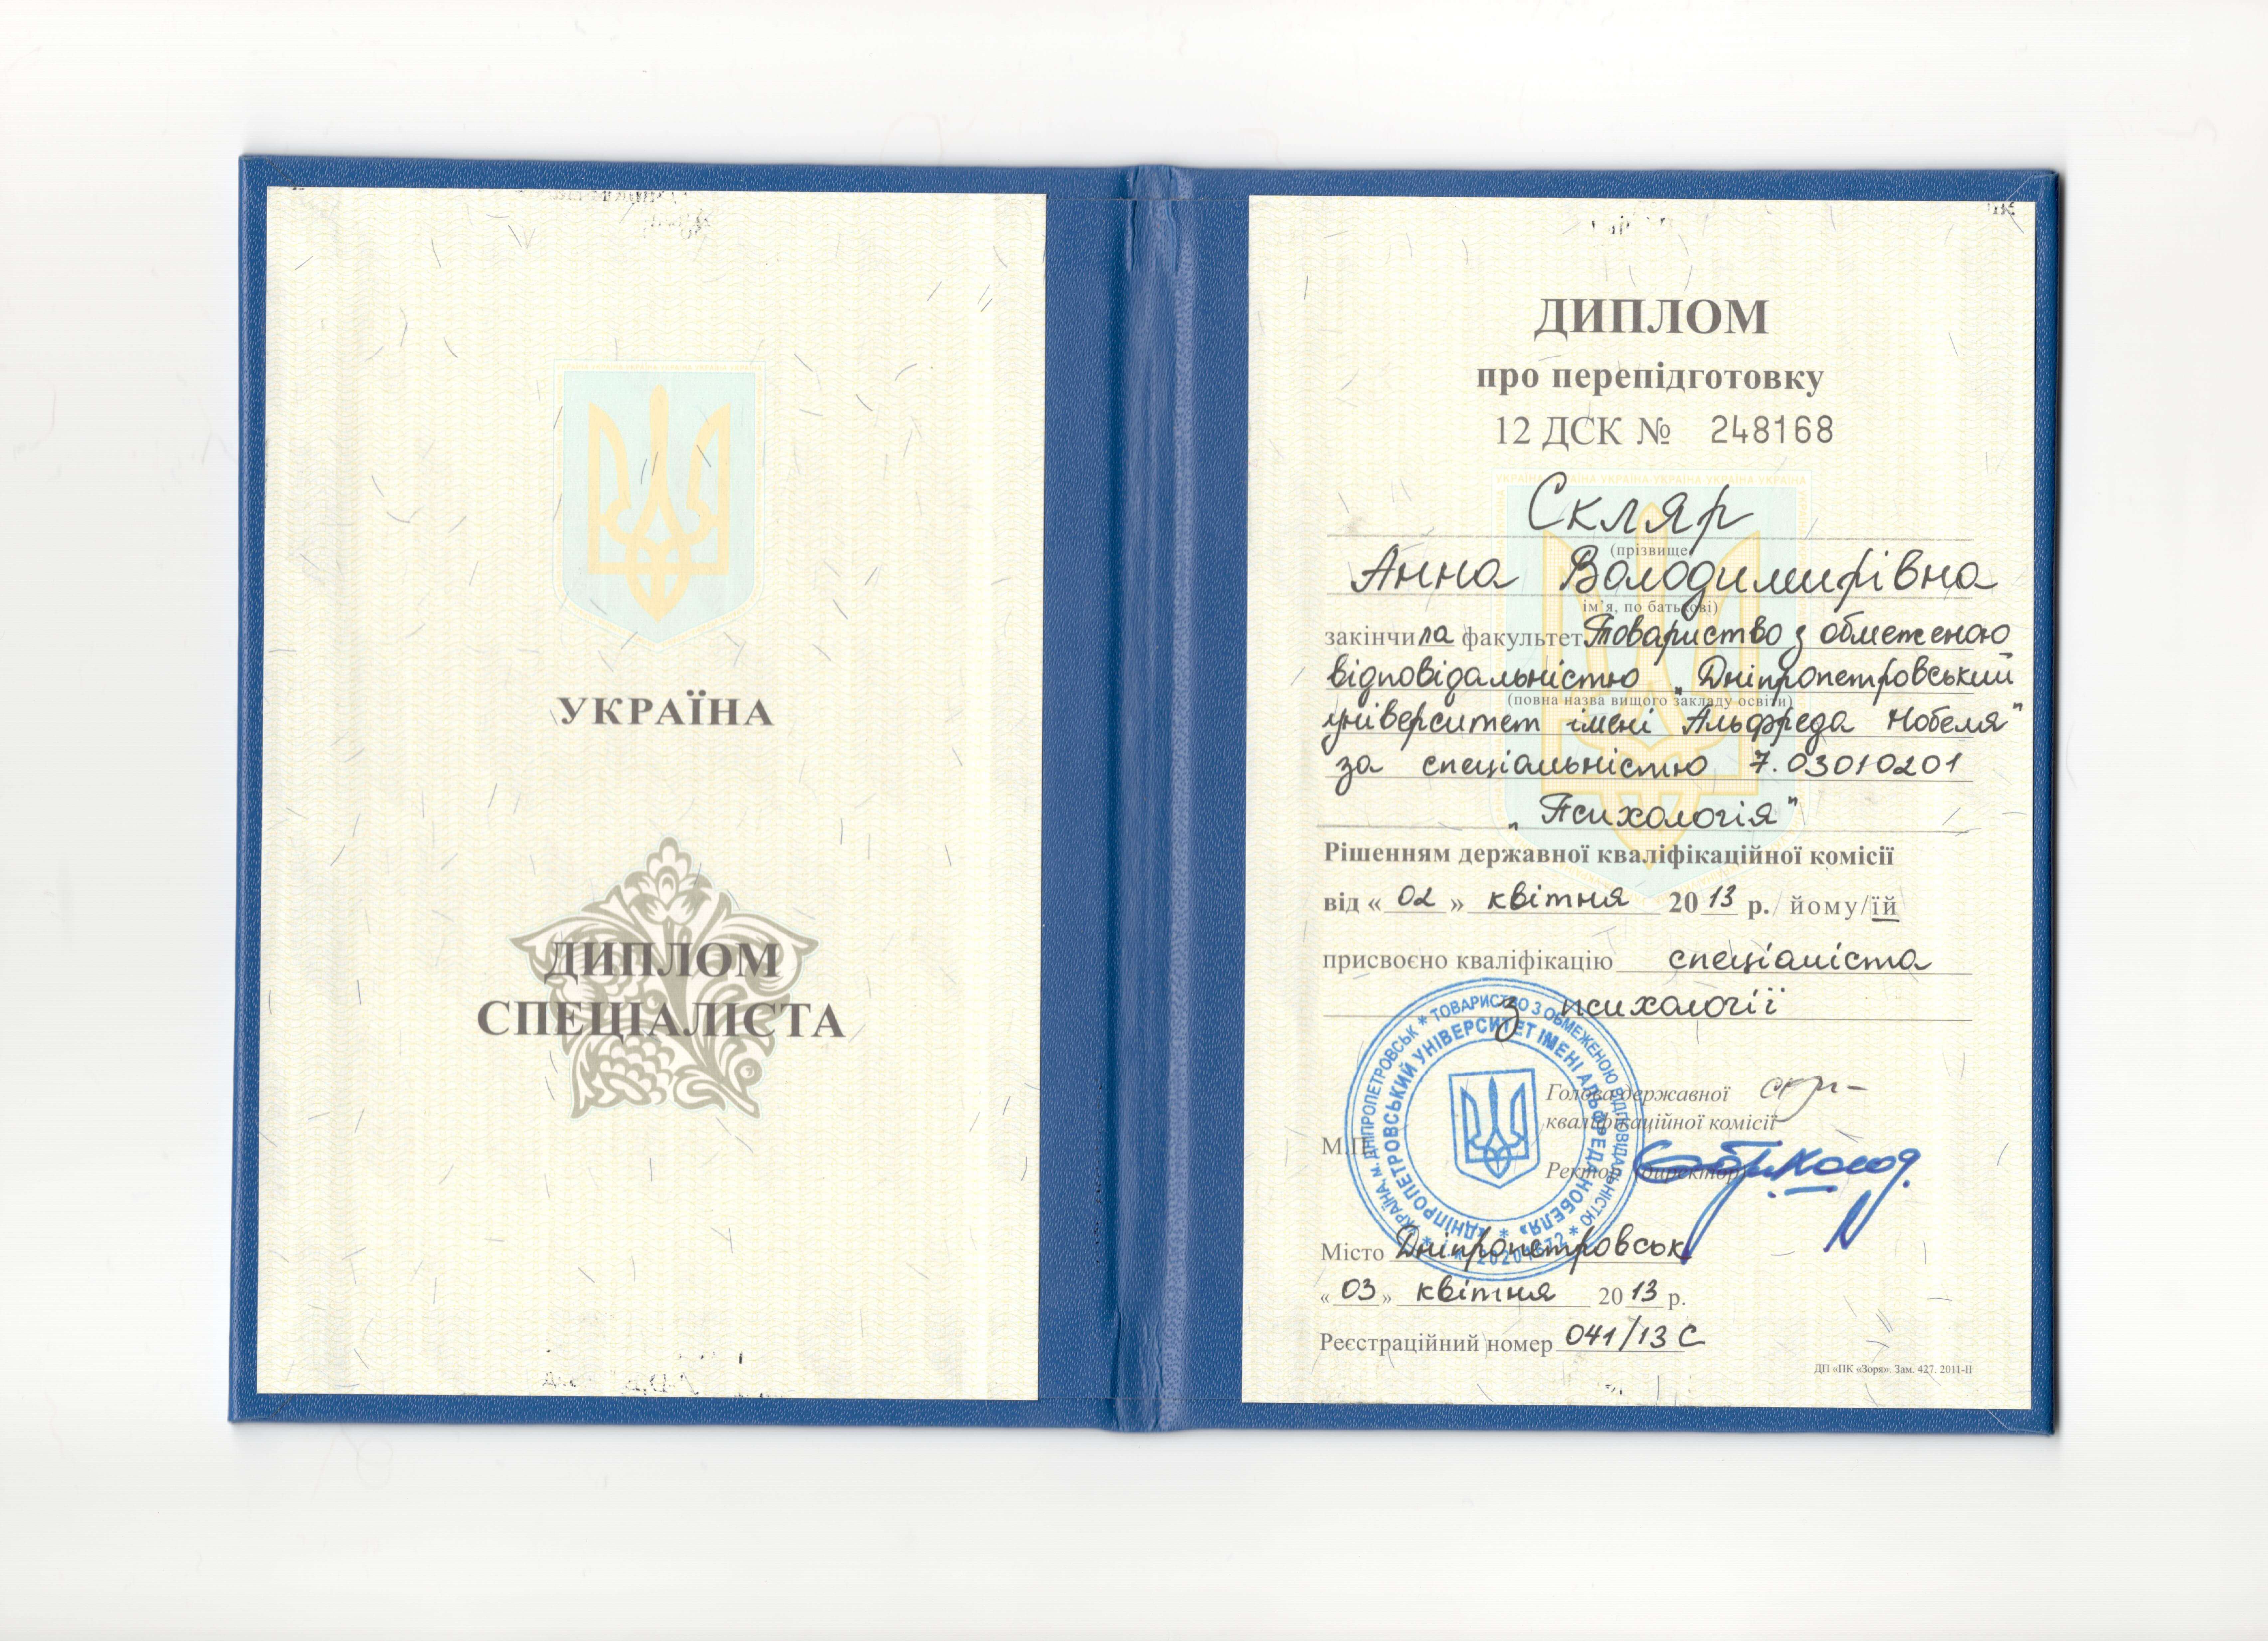 УКРАЇНА
ДИПЛОМ
СПЕЦІАЛІСТА
ДИПЛОМ
про перепідготовку
12 ДСК № 248168
Скляр
(прізвище
Анна Володимирівна
ім'я, по батькові)
закінчила факультет Товариство з обмеженою
відповідальністю „Дніпропетровський
(повна назва вищого закладу освіти)
університет імені Альфреда Нобеля"
за спеціальністю 7.03010201
„Психологія"
Рішенням державної кваліфікаційної комісії
від « 02 » квітня 2013 р. йому/їй
присвоєно кваліфікацію спеціаліста
з психології
Голова державної
кваліфікаційної комісії
М.П.
Ректор (директор)
УКРАЇНА, м. ДНІПРОПЕТРОВСЬК * ТОВАРИСТВО З ОБМЕЖЕНОЮ ВІДПОВІДАЛЬНІСТЮ *
«ДНІПРОПЕТРОВСЬКИЙ УНІВЕРСИТЕТ ІМЕНІ АЛЬФРЕДА НОБЕЛЯ» *
Місто Дніпропетровськ
« 03 » квітня 2013 р.
Реєстраційний номер 041/13 С
ДП «ПК «Зоря». Зам. 427. 2011-ІІ